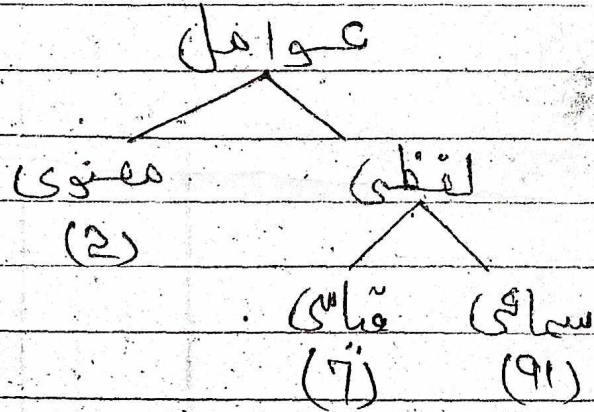 عوامل
لفظی معنوی
(2)
سماعی قیاسی
(91) (7)